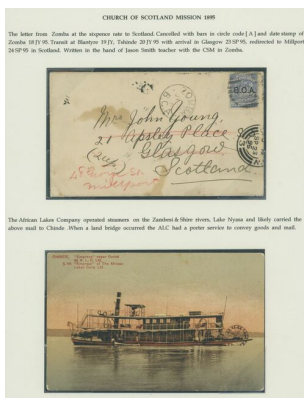 CHURCH OF SCOTLAND MISSION 1895
The letter from Zomba at the sixpence rate to Scotland. Cancelled with bars in circle code [A] and date stamp of
Zomba 18 JY 95. Transit at Blantyre 19 JY, Tshinde 20 JY 95 with arrival in Glasgow 23 SP 95, redirected to Millport
24 SP 95 in Scotland. Written in the hand of Jason Smith teacher with the CSM in Zomba.
B.C.A.
Mrs John Young,
21 Apsley Place
Glasgow
Scotland
Millport
The African Lakes Company operated steamers on the Zambesi & Shire rivers, Lake Nyasa and likely carried the
above mail to Chinde. When a land bridge occurred the ALC had a porter service to convey goods and mail.
CHINDE.